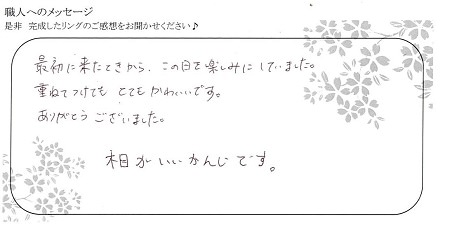 職人へのメッセージ
是非 完成したリングのご感想をお聞かせください♪
最初に来たときから、この日を楽しみにしていました。
重ねてつけても とてもかわいいです。
ありがとうございました。
相がいいかんじです。